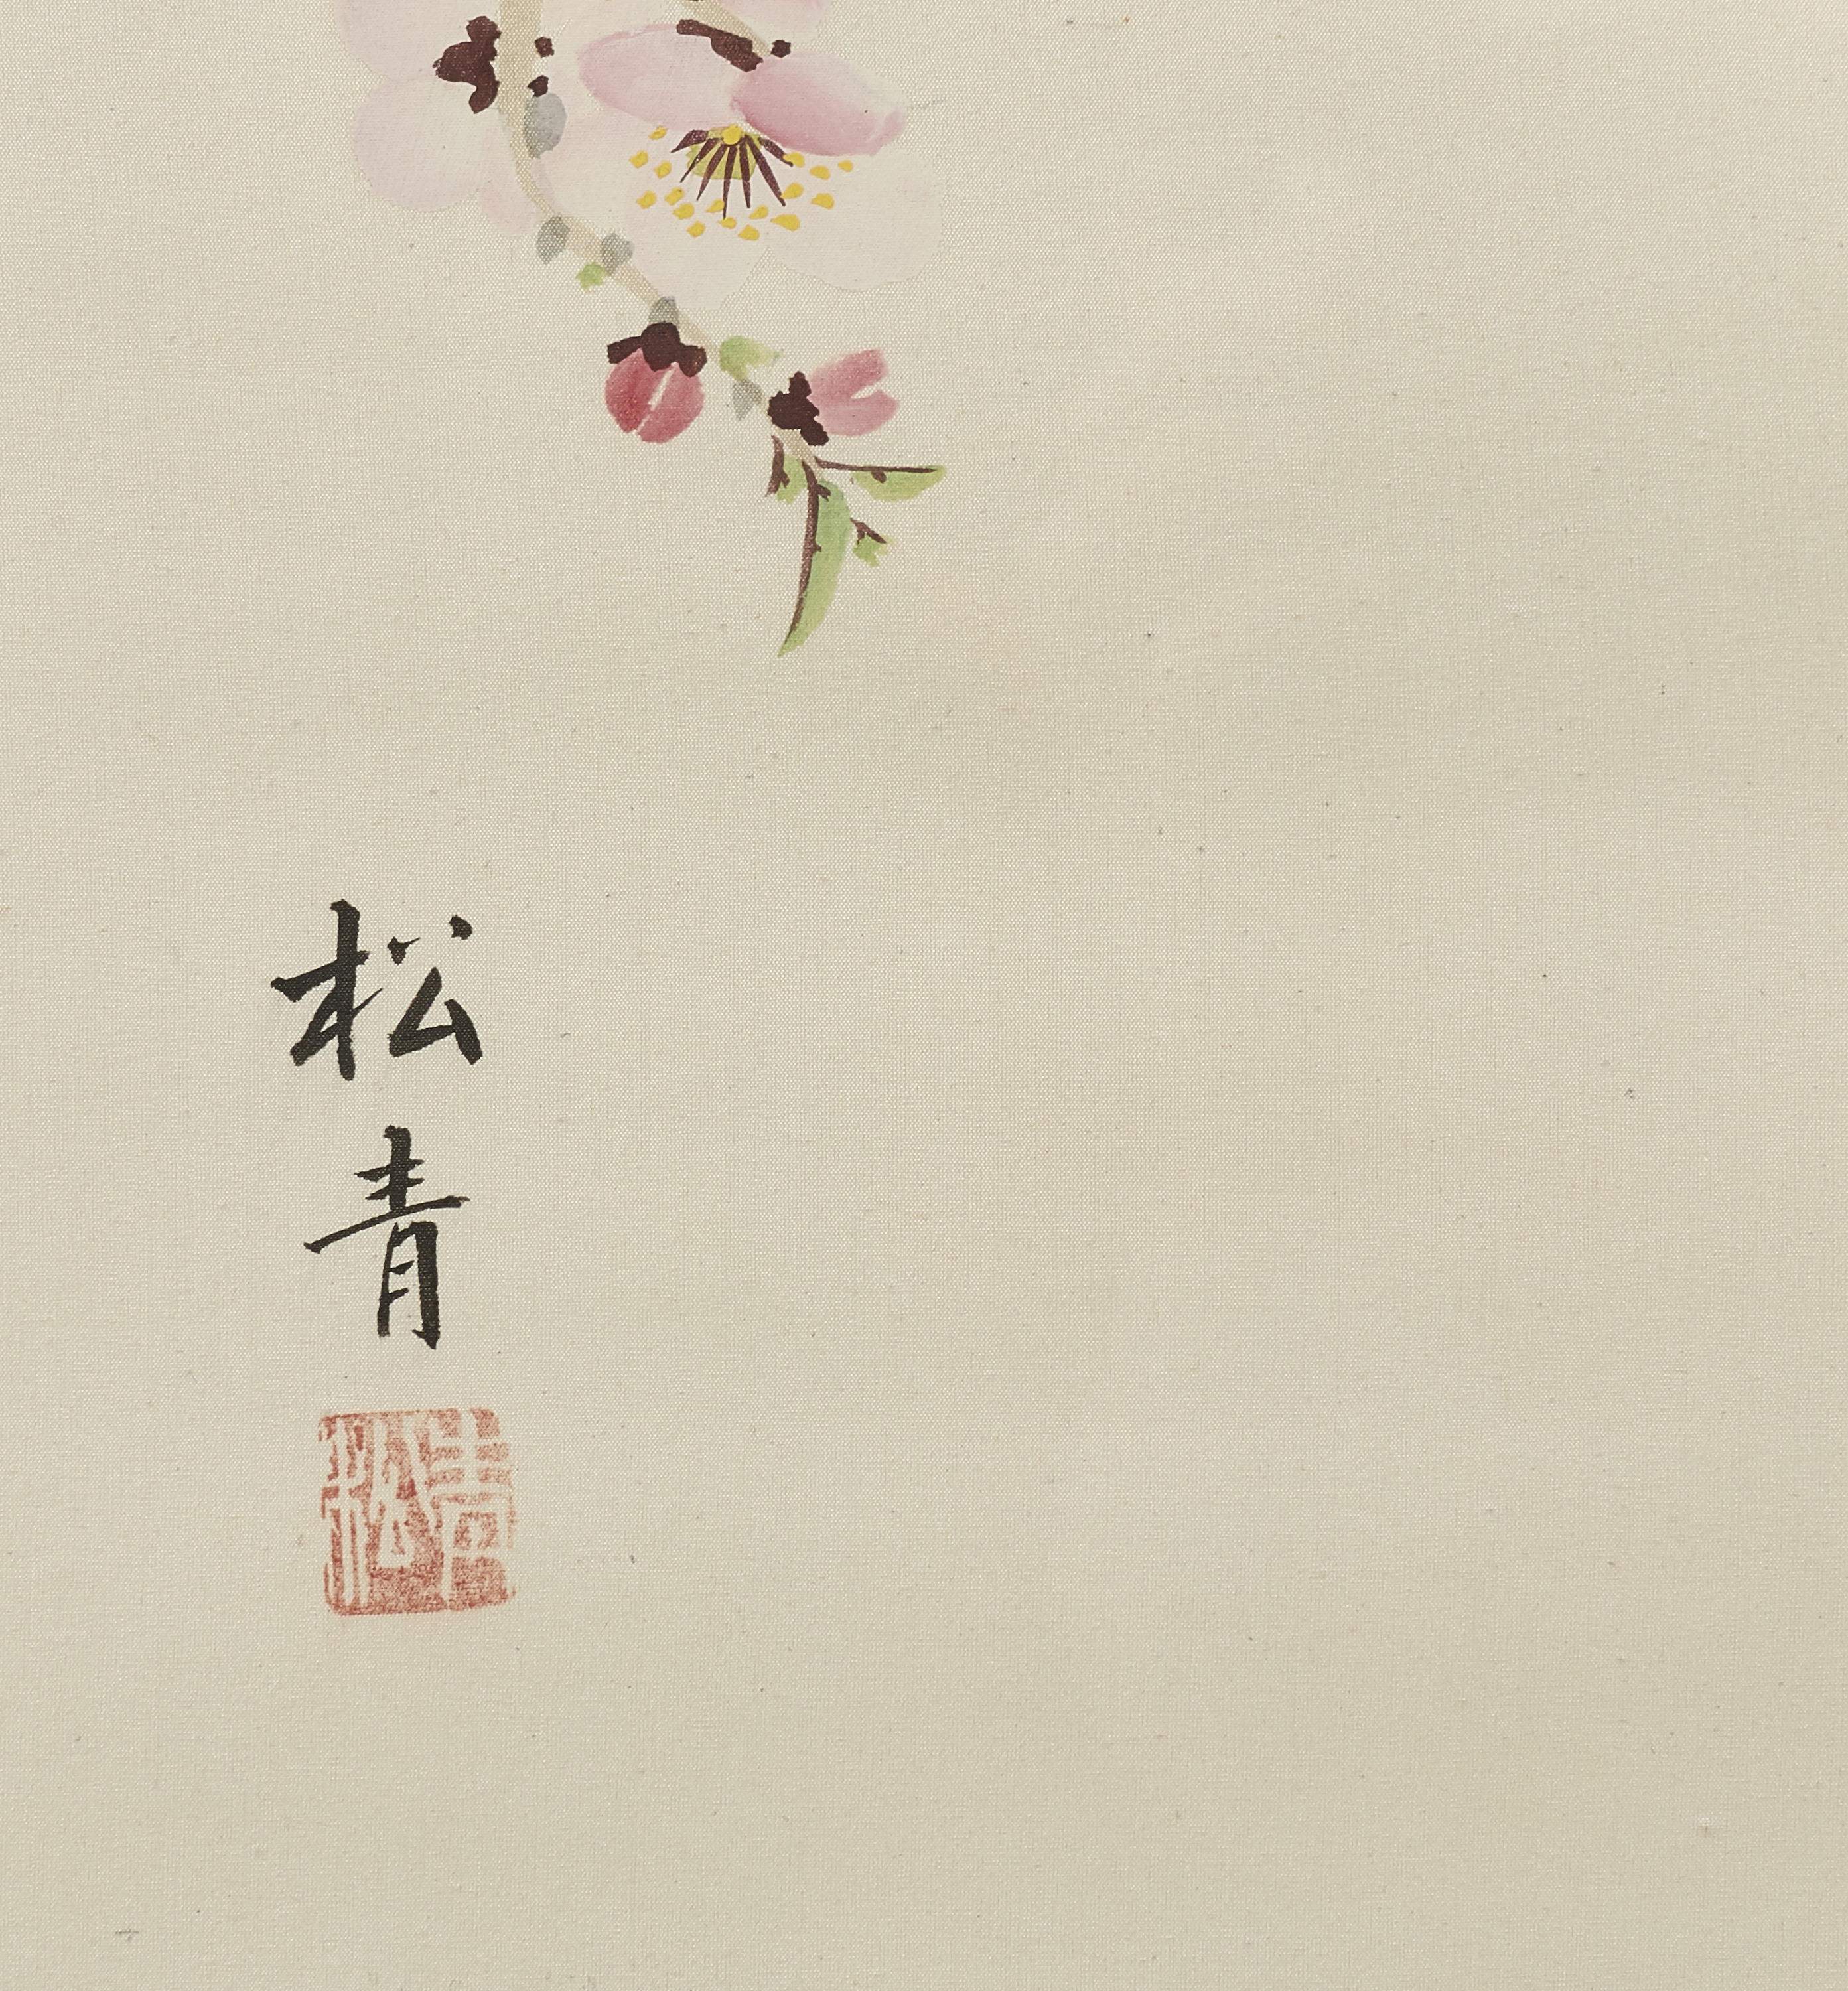 松青
青松